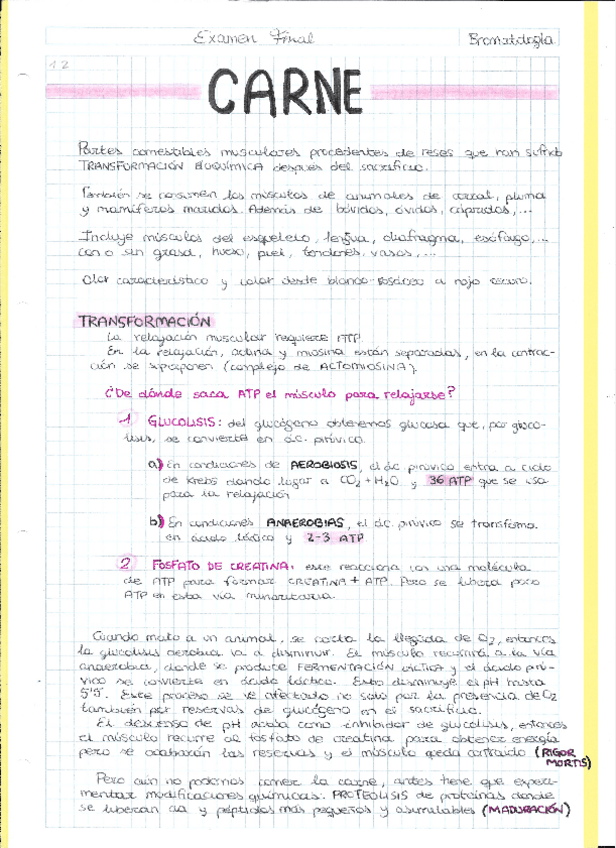 Examen Final
Bromatología
12
CARNE
Partes comestibles musculares procedentes de reses que han sufrido
TRANSFORMACIÓN BIOQUÍMICA después del sacrificio.
También se consumen los músculos de animales de corral, pluma
y mamíferos marinos. Además de bóvidos, óvidos, cápridos,...
Incluye músculos del esqueleto, lengua, diafragma, esófago,...
con o sin grasa, hueso, piel, tendones, vasos,...
Olor característico y color desde blanco-rosáceo a rojo oscuro.
TRANSFORMACIÓN
La relajación muscular requiere ATP.
En la relajación, actina y miosina están separadas, en la contrac-
ción se superponen (complejo de ACTOMIOSINA).
¿De dónde saca ATP el músculo para relajarse?
1 GLUCOLISIS: del glucógeno obtenemos glucosa que, por gluco-
lisis, se convierte en ác. pirúvico.
a) En condiciones de AEROBIOSIS, el ác. pirúvico entra a ciclo
de Krebs dando lugar a CO2 + H2O y 36 ATP que se usa
para la relajación
b) En condiciones ANAEROBIAS, el ác. pirúvico se transforma
en ácido láctico y 2-3 ATP
2 FOSFATO DE CREATINA: este reacciona con una molécula
de ATP para formar CREATINA + ATP. Pero se libera poco
ATP en esta vía minoritaria.
Cuando mato a un animal, se corta la llegada de O2, entonces
la glucolisis aerobia va a disminuir. El músculo recurrirá a la vía
anaerobia, donde se produce FERMENTACIÓN LÁCTICA y el ácido pirú-
vico se convierte en ácido láctico. Esto disminuye el pH hasta
5'5. Este proceso se ve afectado no solo por la presencia de O2
también por reservas de glucógeno en el sacrificio.
El descenso de pH actúa como inhibidor de glucolisis, entonces
el músculo recurre al fosfato de creatina para obtener energía
pero se acabarán las reservas y el músculo queda contraído (RIGOR
MORTIS)
Pero aún no podemos comer la carne, antes tiene que experi-
mentar modificaciones químicas: PROTEOLISIS de proteínas donde
se liberan aa y péptidos más pequeños y asimilables (MADURACIÓN)